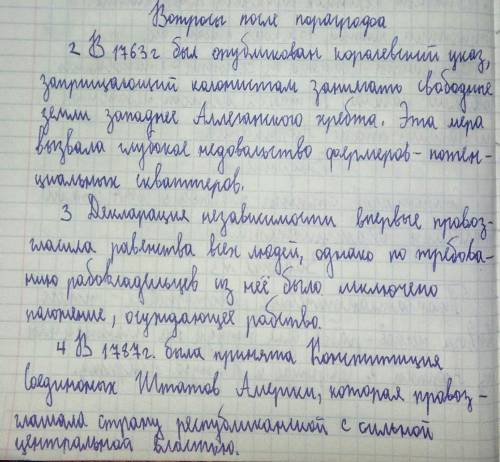 Вопросы после параграфа
2 В 1763г был опубликован королевский указ,
запрещающий колонистам занимать свободные
земли западнее Аллеганского хребта. Эта мера
вызвала глубокое недовольство фермеров - потен-
циальных скваттеров.
3 Декларация независимости впервые провоз-
гласила равенства всех людей, однако по требова-
нию рабовладельцев из неё было исключено
положение, осуждающее рабство.
4 В 1787г. была принята Конституция
Соединённых Штатов Америки, которая провоз-
глашала страну республиканской с сильной
центральной властию.